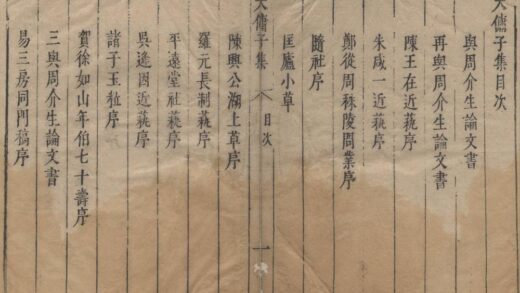 天傭子集目次
與周介生論文書
再與周介生論文書
陳王在近蓺序
朱咸一近蓺序
鄭從周秣陵問業序
隨社序
匡廬小草
天傭子集 目次 一
陳興公湖上草序
羅元長制蓺序
平遠堂社蓺序
吳逢因近蓺序
諸子玉粒序
賀徐如山年伯七十壽序
三與周介生論文書
易三房同門稿序